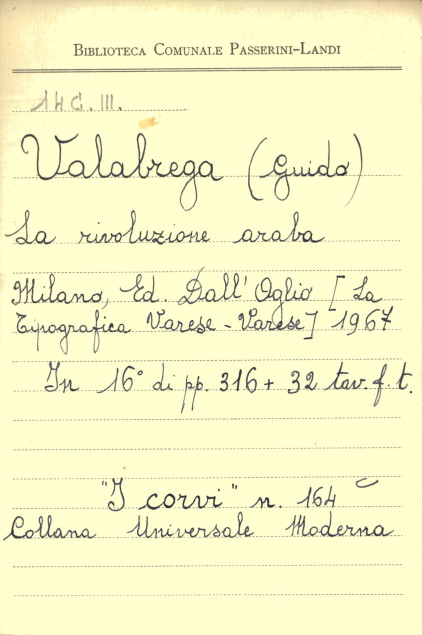 BIBLIOTECA COMUNALE PASSERINI-LANDI
14 G. III.
Valabrega (Guido)
La rivoluzione araba
Milano, Ed. Dall'Oglio [La
Tipografica Varese - Varese] 1967
In 16° di pp. 316 + 32 tav. f. t.
"I corvi" n. 164
Collana Universale Moderna